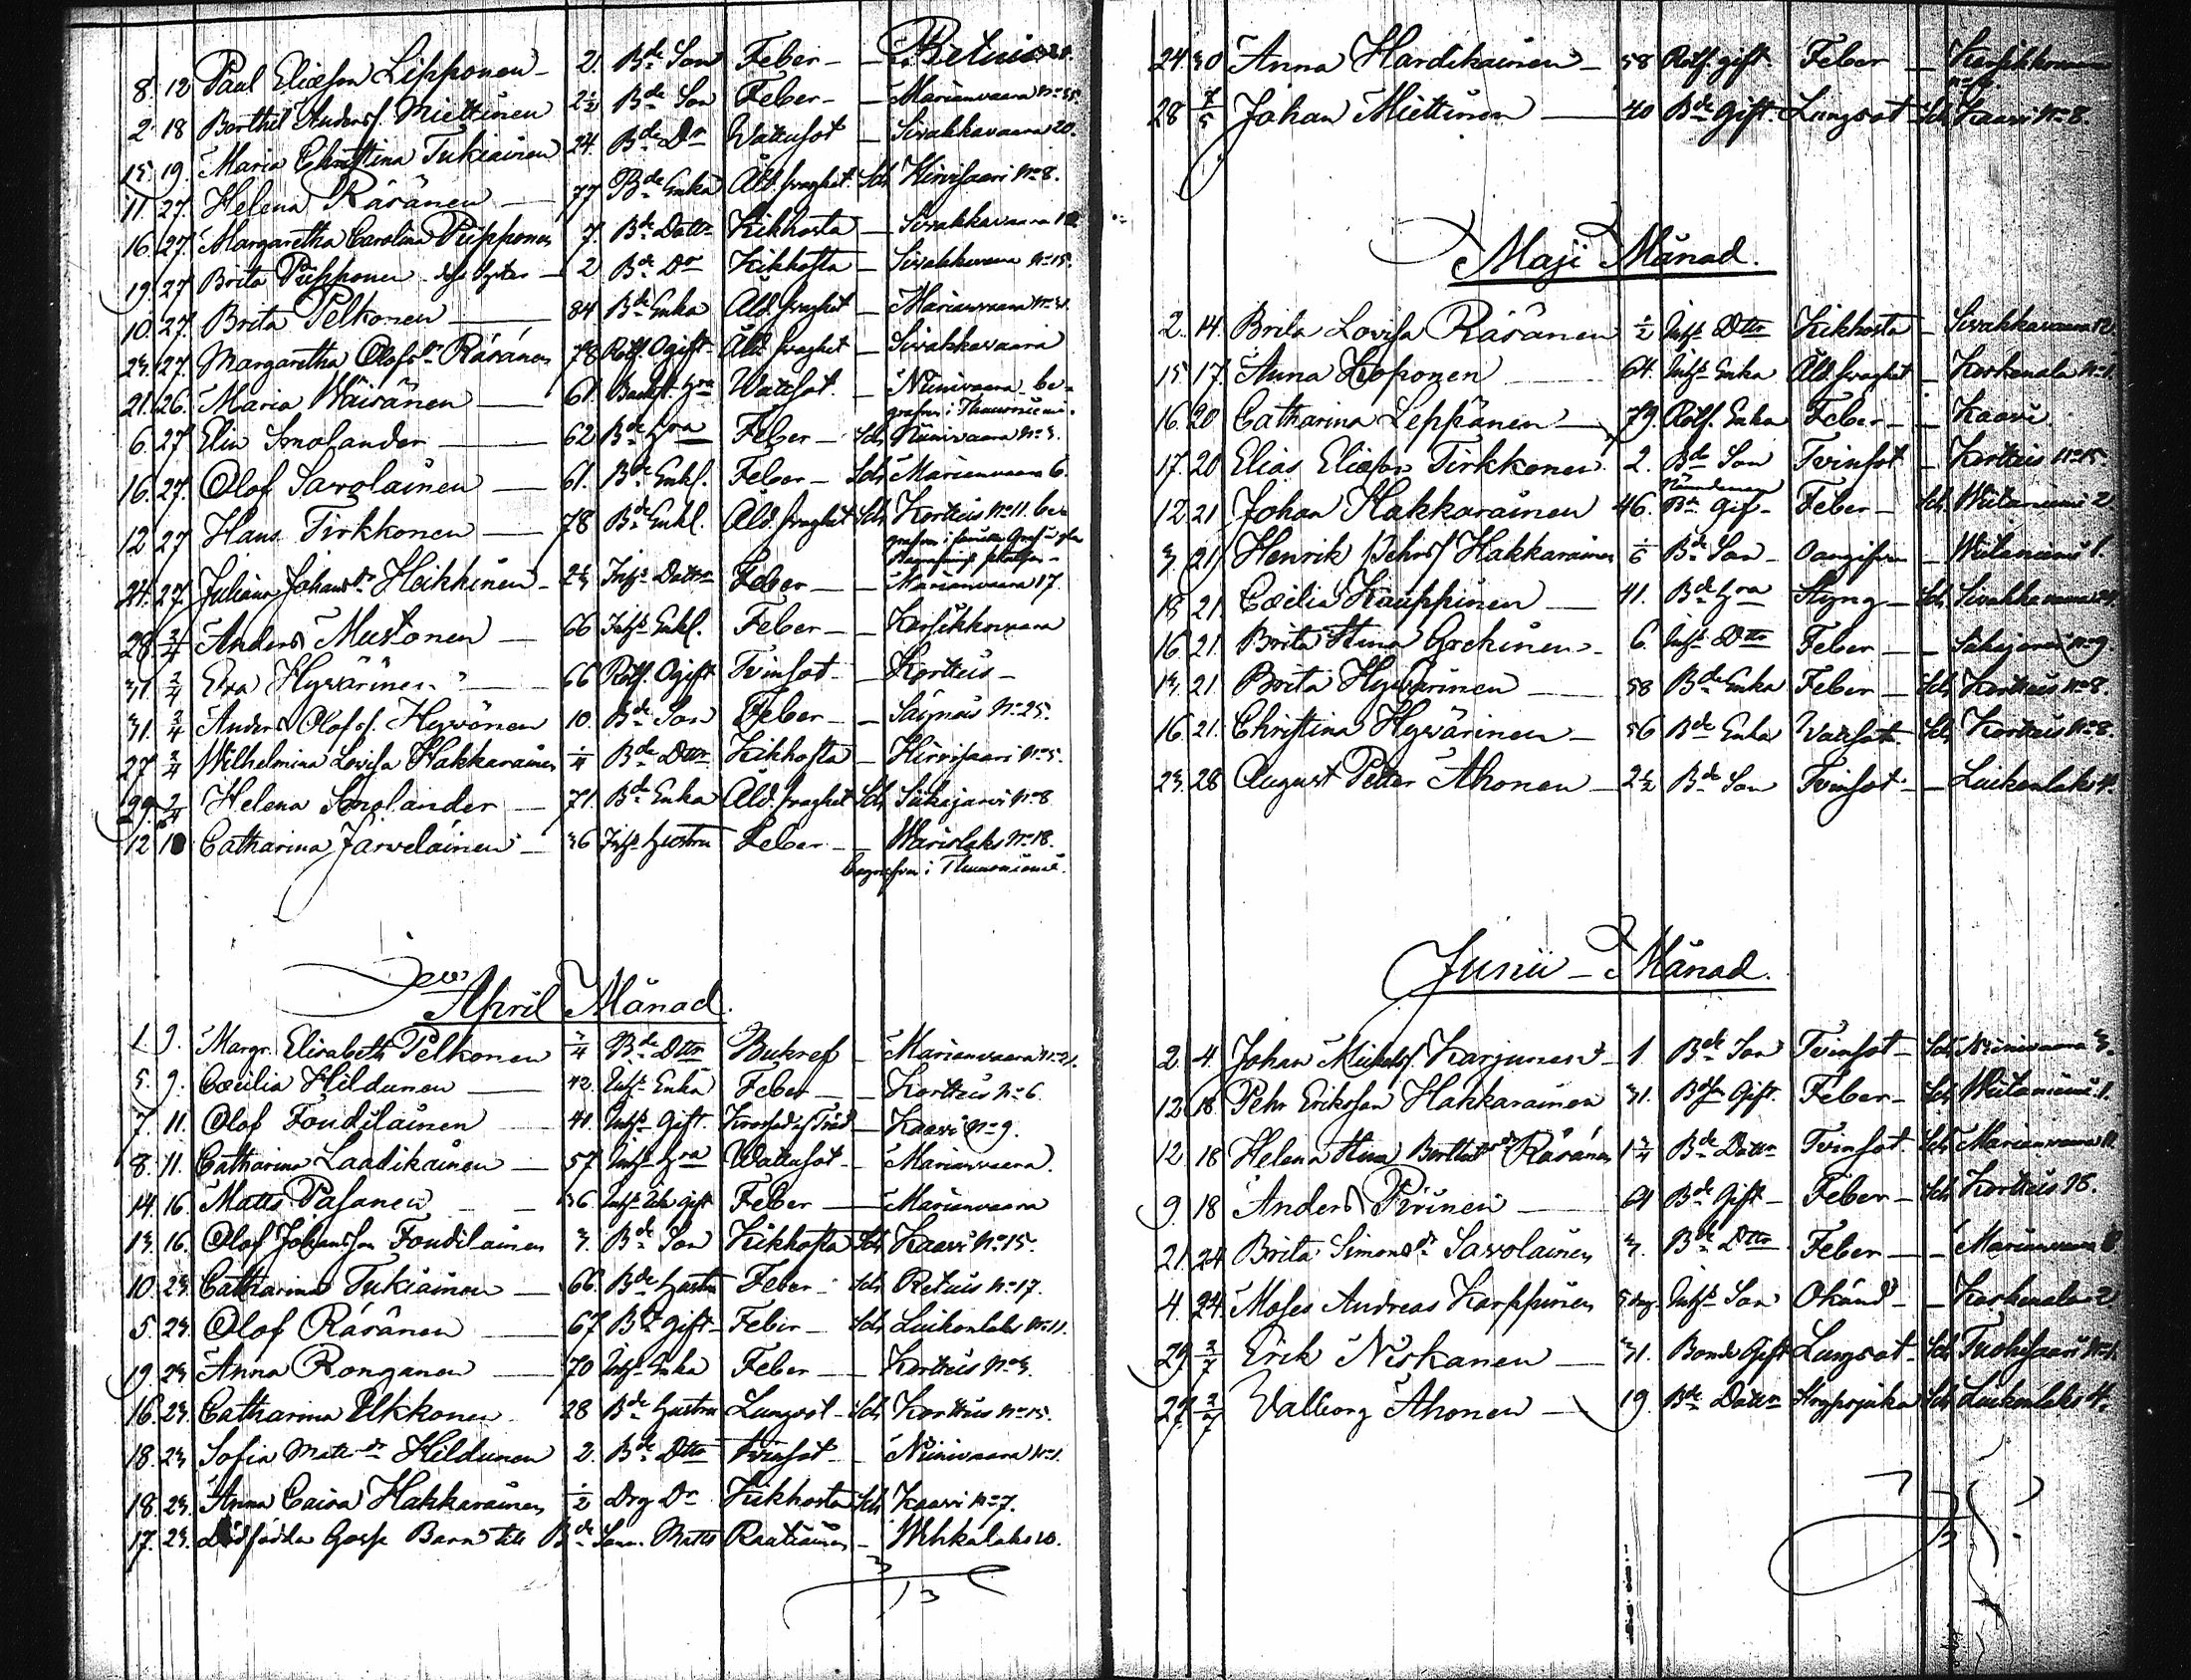 8. 12 Paul Eliæson Lipponen - 2. Bde Son Feber - - Retuis
2. 18 Berthil Anders. Miettinen 2½ Bde Son Feber - - Marianvaara No 35.
15. 19. Maria Christina Tukiainen 24. Bde Dr Wattusot - Sivakkavaara 20.
11. 27. Helena Räsänen - 77 Bde Enka Åld. svaghet. Sch Hirvisaari No 8.
16. 27. Margaretha Carolina Piipponen 7. Bde Dottr Kikhosta - Sivakkavaara
19. 27 Brita Piipponen dess Syster - 2 Bde Dr Kikhosta - Sivakkavaara No 15.
10. 27. Brita Pelkonen - 84 Bde Enka Åld. svaghet - Marianvaara No 31.
23. 27. Margaretha Olofsdr Räsänen 78 Rotf. Ogift Åld. svaghet - Sivakkavaara
21. 26. Maria Wäisänen - 61. Backst. Hra Wattsot. - Niinivaara be-
grafven i Thuusniemi.
6. 27 Elin Smolander - 62 Bde Hra Feber - Sch Niinivaara No 3.
16. 27. Olof Savolainen - 61. Bde Enkl. Feber - Sch Marianvaara 6.
12 27 Hans Tirkkonen - 78 Bde Enkl. Åld. svaghet Sch Kortteis No 11. be-
grafven i
24. 27. Juliana Johansdr Heikkinen - 2¾ Inhs Dottr Feber - - Marianvaara 17.
28 2/4 Anders Mustonen - 66 Inhs Enkl. Feber - - Karsikkovaara
31. 2/4 Eva Hyvärinen - 66 Rotf. Ogift Tvinsot - Kortteis -
31. 2/4 Anders Olofs. Hyvönen 10. Bde Son Feber - - Säyneis No 25.
27 2/4 Wilhelmina Lovisa Hakkarainen ¼ Bde Dttr Kikhosta - Hirvisaari No 5.
29. 2/4 Helena Smolander - 71. Bde Enka Åld. svaghet Sch Siikajärvi No 8
12 10 Catharina Järveläinen - 36 Inhs Hustru Feber - - Warislaks No 18.
begrafven i Thuusniemi.
April Månad.
1. 9. Margr. Elisabeth Pelkonen ¾ Bde Dttr Bukref - Marianvaara No 21.
5. 9. Cæcilia Hildunen - 42. Inhs Enka Feber - - Kortteis No 6.
7. 11. Olof Toudilainen - 41. Inhs Gift. Krossad af Träd - Kaavi No 9.
8. 11. Catharina Laadikainen - 57 Inhs Hra Wattusot - - Marianvaara.
14. 16. Matts Pasanen - - 36. Inhs Gift Feber - Marianvaara
13. 16. Olof Johansson Toudilainen 3. Bde Son Kikhosta Sch Kaavi No 15.
10. 23. Catharina Tukiainen - 66. Bde Hustru Feber - Sch Retuis No 17.
5. 23. Olof Räsänen - 67 Bde Gift - Feber - Sch Luikonlaks No 11.
19. 23. Anna Ronganen - 70 Inhs Enka Feber - - Kortteis No 3.
16. 23. Catharina Ulkkonen - 28 Bde Hustru Lungsot - Sch Kortteis No 15.
18. 23. Sofia Mattsdr Hildunen 2. Bde Dttr Tvinsot - - Niinivaara No 1.
18. 23. Anna Caisa Hakkarainen ½ Drg Dr Kikhosta Sch Kaavi No 7.
17. 23. Dödfödda Gosse Barn till Bde Sonn. Matts Raatiainen - Wehkalaks 10.
24. 30 Anna Hardikainen - 58 Rotf. gift Feber - Karsikkovaara
28 7/5 Johan Miettinen - 40 Bde Gift. Lungsot - Sch Kaavi No 8.
Maji Månad.
2. 14. Brita Lovisa Räsänen ½ Inhs Dttr Kikhosta - Sivakkavaara 12.
15 17. Anna Koponen - 64. Inhs Enka Åld. svaghet - Kerkenala No 1.
16. 20 Catharina Leppänen - 79. Rotf. Enka Feber - - Kaavi.
17. 20 Elias Eliæson Tirkkonen 2. Bde Son Tvinsot - Kortteis No 15.
Nämndeman
12. 21 Johan Hakkarainen 46. Bde Gif - Feber - Sch. Wiitaniemi 2
3. 21 Henrik Pehrs. Hakkarainen Bde Son - Oangifven - Wiitaniemi 1.
18 21. Cæcilia Kauppinen - 41. Bde Hra Styng - Sch Sivakkavaara
16. 21. Brita Stina Gockinen - 6. Inhs Dttr Feber - - Siikajärvi No 9.
13. 21. Brita Hyvärinen - 58 Bde Enka Feber - Sch Kortteis No 8.
16. 21. Christina Hyvärinen - 56 Bde Enka Wattsot. Sch Kortteis No 8.
23. 28 August Petter Ahonen - 2½ Bde Son Tvinsot - - Luikonlaks 4.
Junii - Månad.
2. 4. Johan Michels. Karjunen - 1. Bde Son Tvinsot - Sch Niinivaara 3.
12. 18. Pehr Eriksson Hakkarainen 31. Bdsn Gift. Feber - Sch Wiitaniemi 1.
12 18 Helena Stina Berttilsdr Räsänen 1¾ Bde Dottr Tvinsot. Sch Marianvaara 11.
9. 18 Anders Piirinen - 64 Bde Gift - Feber - Sch Kortteis 18.
21. 24 Brita Simonsdr Savolainen 3. Bde Dttr Feber - - Marianvaara 8.
4. 24. Moses Andreas Karppinen 5 dag. Inhs Son Okänd - - Kerkenala 2
29 2/7 Erik Niskanen - 31. Bonde Gift Lungsot - Sch Tuohisaari No 1.
27. 2/7 Walborg Ahonen - 19. Bde Dottr Strypsjuka Sch Luikonlaks 4.